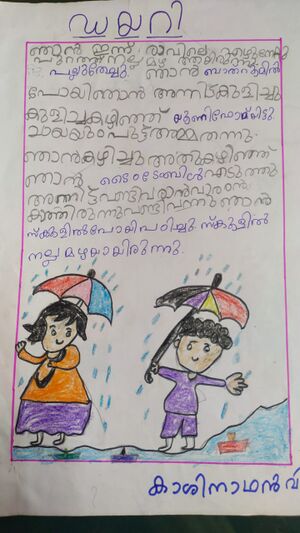 ഡയറി
ഞാൻ ഇന്ന് രാവിലെ എഴുന്നേറ്റു
പുറത്ത് നല്ല മഴ ആയിരുന്നു
പല്ലുതേച്ചു ഞാൻ ബാത്റൂമിൽ
പോയി ഞാൻ അന്നിട്ട് കുളിച്ചു
കുളിച്ചുകഴിഞ്ഞ് യൂണിഫോമിട്ടു
ചായയും പുട്ട് അമ്മ തന്നു.
ഞാൻ കഴിച്ചു അതുകഴിഞ്ഞ്
ഞാൻ ടൈംടേബിൾ എടുത്തു
അന്നിട്ട് വണ്ടി വരാൻ
കാത്തിരുന്നു വണ്ടി വന്നു ഞാൻ
സ്കൂളിൽ പോയി പഠിച്ചു സ്കൂളിൽ
നല്ല മഴയായിരുന്നു.
കാശിനാഥൻ വി